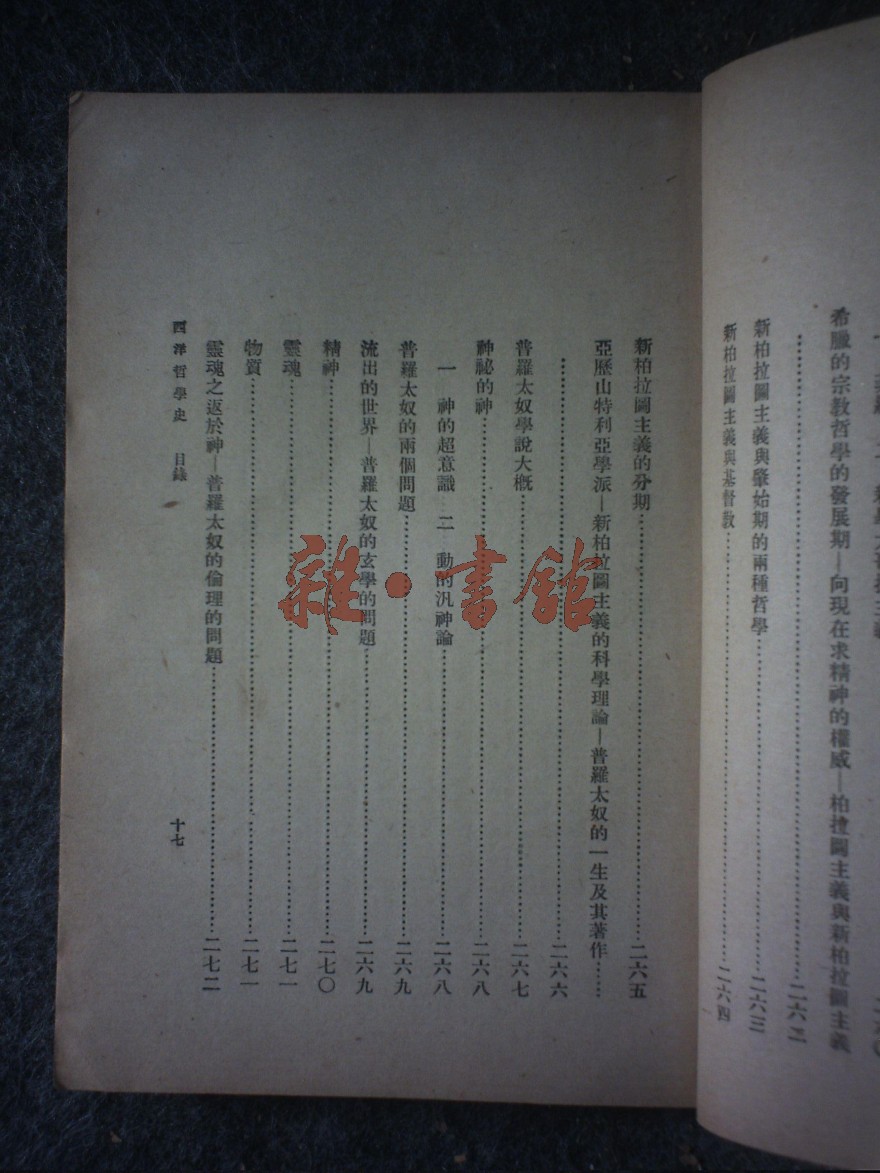 希臘的宗教哲學的發展期—向現在求精神的權威—柏拉圖主義與新柏拉圖主義
……二六二
新柏拉圖主義與肇始期的兩種哲學……二六三
新柏拉圖主義與基督教……二六四
新柏拉圖主義的分期……二六五
亞歷山特利亞學派—新柏拉圖主義的科學理論—普羅太奴的一生及其著作……
……二六六
普羅太奴學說大概……二六七
神祕的神……二六八
一 神的超意識 二 動的汎神論……二六八
普羅太奴的兩個問題……二六九
流出的世界—普羅太奴的玄學的問題……二六九
精神……二七〇
靈魂……二七一
物質……二七一
靈魂之返於神—普羅太奴的倫理的問題……二七二
西洋哲學史 目錄 十七
雜·書館